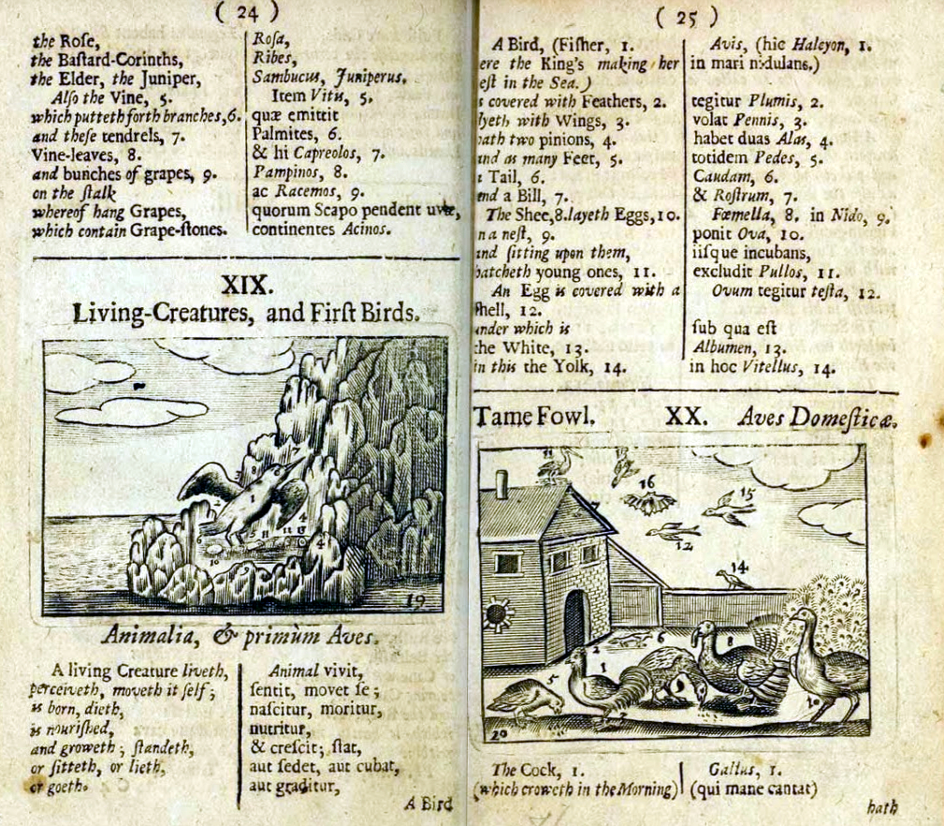 ( 24 )
the Roſe,
the Baſtard-Corinths,
the Elder, the Juniper,
Alſo the Vine, 5.
which putteth forth branches, 6.
and theſe tendrels, 7.
Vine-leaves, 8.
and bunches of grapes, 9.
on the ſtalk
whereof hang Grapes,
which contain Grape-ſtones.
Roſa,
Ribes,
Sambucus, Juniperus.
Item Vitis, 5.
quæ emittit
Palmites, 6.
& hi Capreolos, 7.
Pampinos, 8.
ac Racemos, 9.
quorum Scapo pendent uvæ,
continentes Acinos.
XIX.
Living-Creatures, and Firſt Birds.
19
Animalia, & primùm Aves.
A living Creature liveth,
perceiveth, moveth it ſelf;
is born, dieth,
is nouriſhed,
and groweth; ſtandeth,
or ſitteth, or lieth,
or goeth.
Animal vivit,
ſentit, movet ſe;
naſcitur, moritur,
nutritur,
& creſcit; ſtat,
aut ſedet, aut cubat,
aut graditur,
A Bird
( 25 )
A Bird, (Fiſher, 1.
ere the King's making her
eſt in the Sea.)
s covered with Feathers, 2.
lyeth with Wings, 3.
hath two pinions, 4.
and as many Feet, 5.
Tail, 6.
and a Bill, 7.
The Shee, 8. layeth Eggs, 10.
n a neſt, 9.
and ſitting upon them,
hatcheth young ones, 11.
An Egg is covered with a
ſhell, 12.
under which is
the White, 13.
in this the Yolk, 14.
Avis, (hic Halcyon, 1.
in mari nidulans.)
tegitur Plumis, 2.
volat Pennis, 3.
habet duas Alas, 4.
totidem Pedes, 5.
Caudam, 6.
& Roſtrum, 7.
Fœmella, 8. in Nido, 9.
ponit Ova, 10.
iiſque incubans,
excludit Pullos, 11.
Ovum tegitur teſta, 12.
ſub qua eſt
Albumen, 13.
in hoc Vitellus, 14.
Tame Fowl. XX. Aves Domeſticæ.
11
16
15
12
14
6
8
2
1
5
10
20
The Cock, 1.
(which croweth in the Morning)
Gallus, 1.
(qui mane cantat)
hath